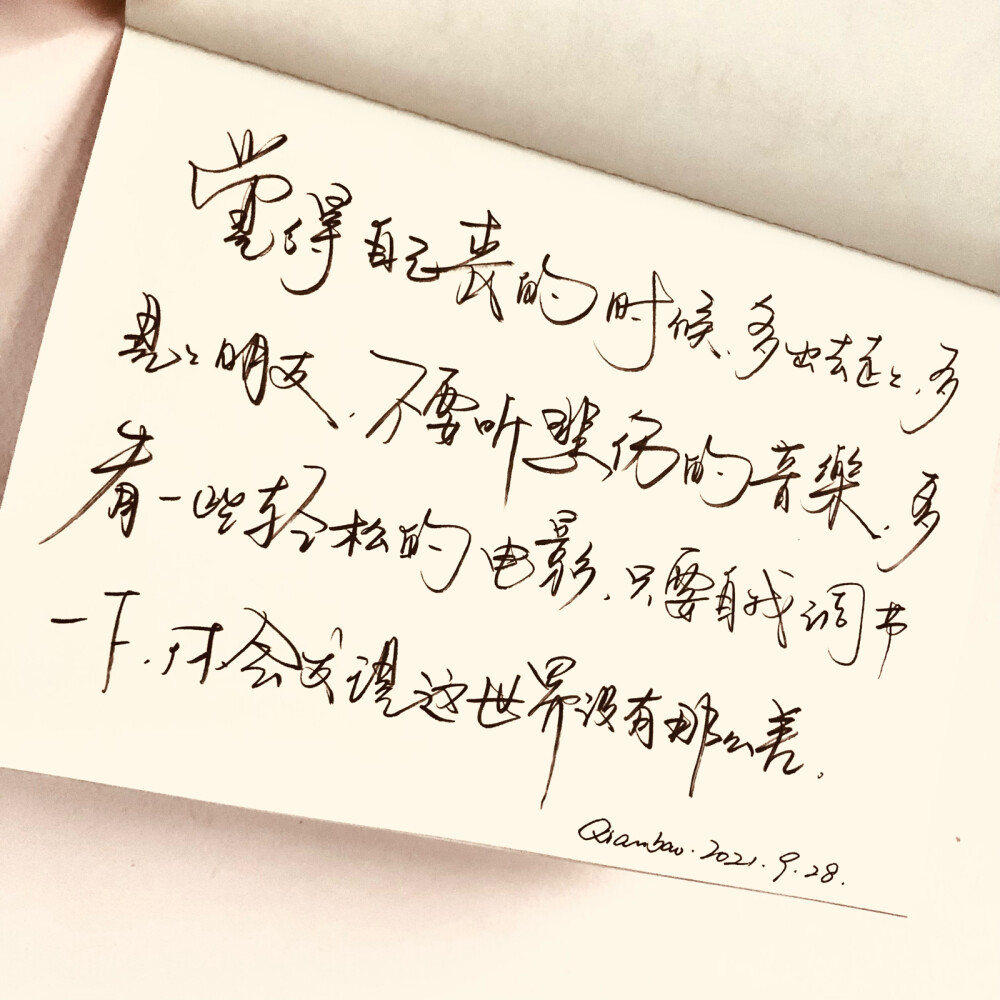 觉得自己丧的时候，多出去走走，多
见见朋友，不要听悲伤的音樂，多
看一些轻松的电影，只要自我调节
一下，才会发现这世界没有那么差。
Qianbao. 2021. 9. 28.